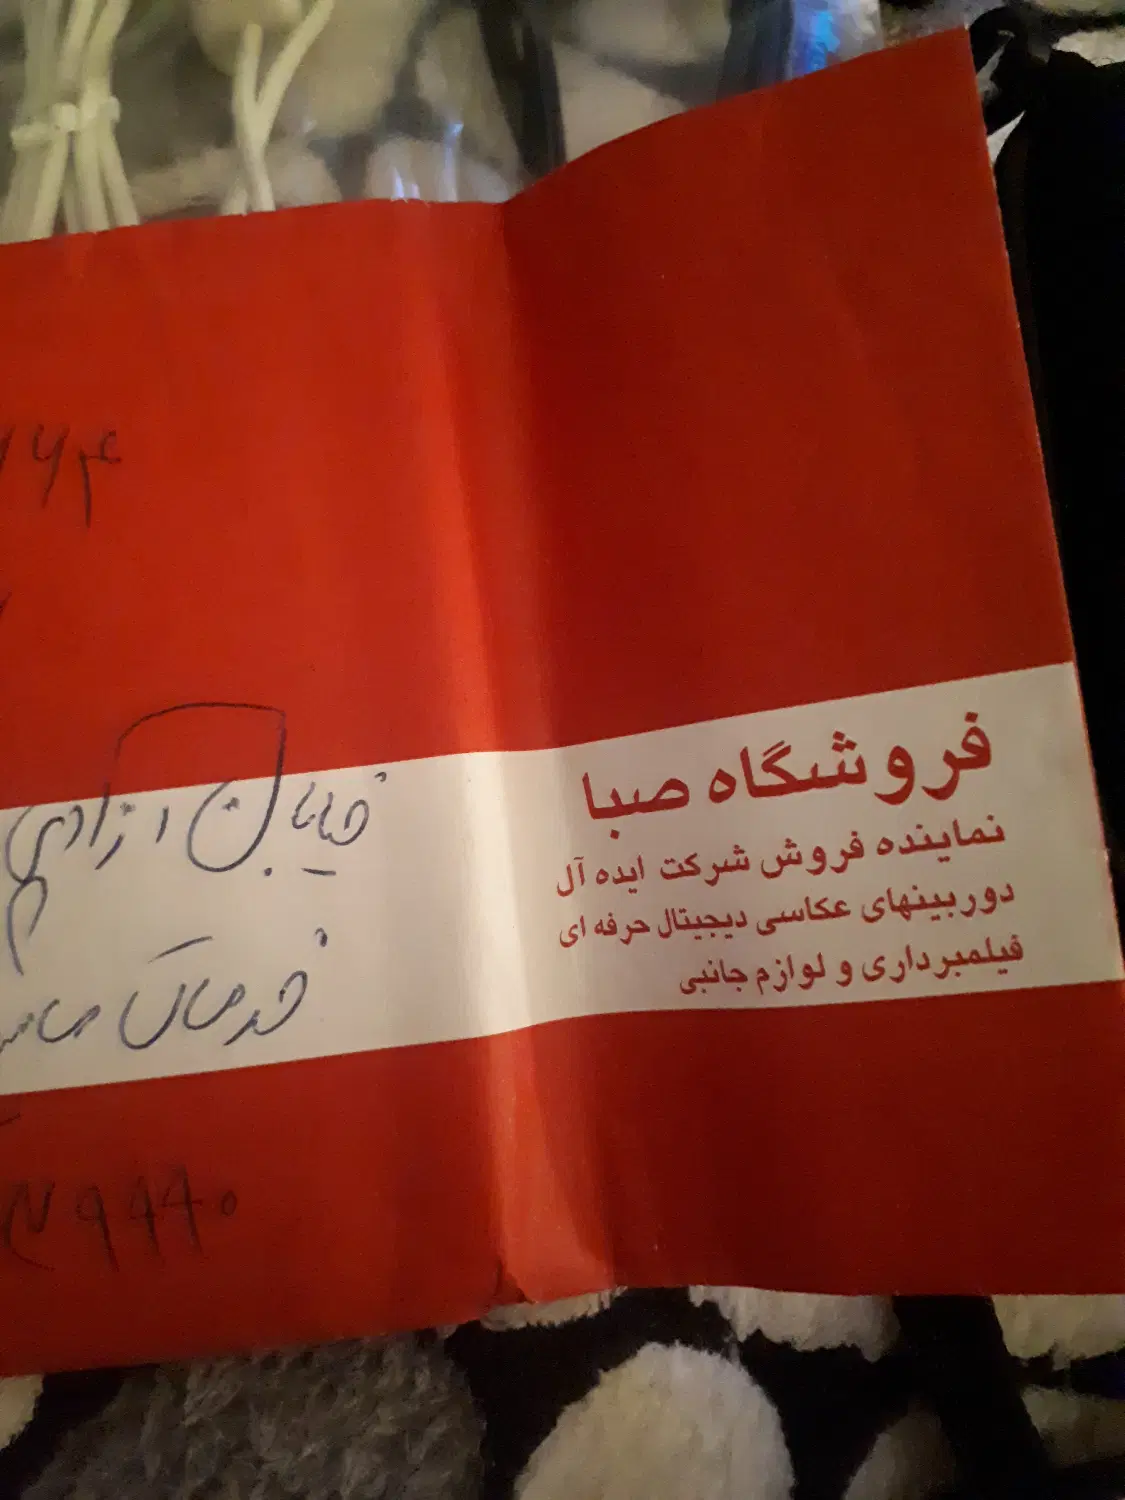 فروشگاه صبا
نماینده فروش شرکت ایده آل
دوربینهای عکاسی دیجیتال حرفه ای
فیلمبرداری و لوازم جانبی
۶۴
خیابان ازادی
خدمات
۹۹۹۰